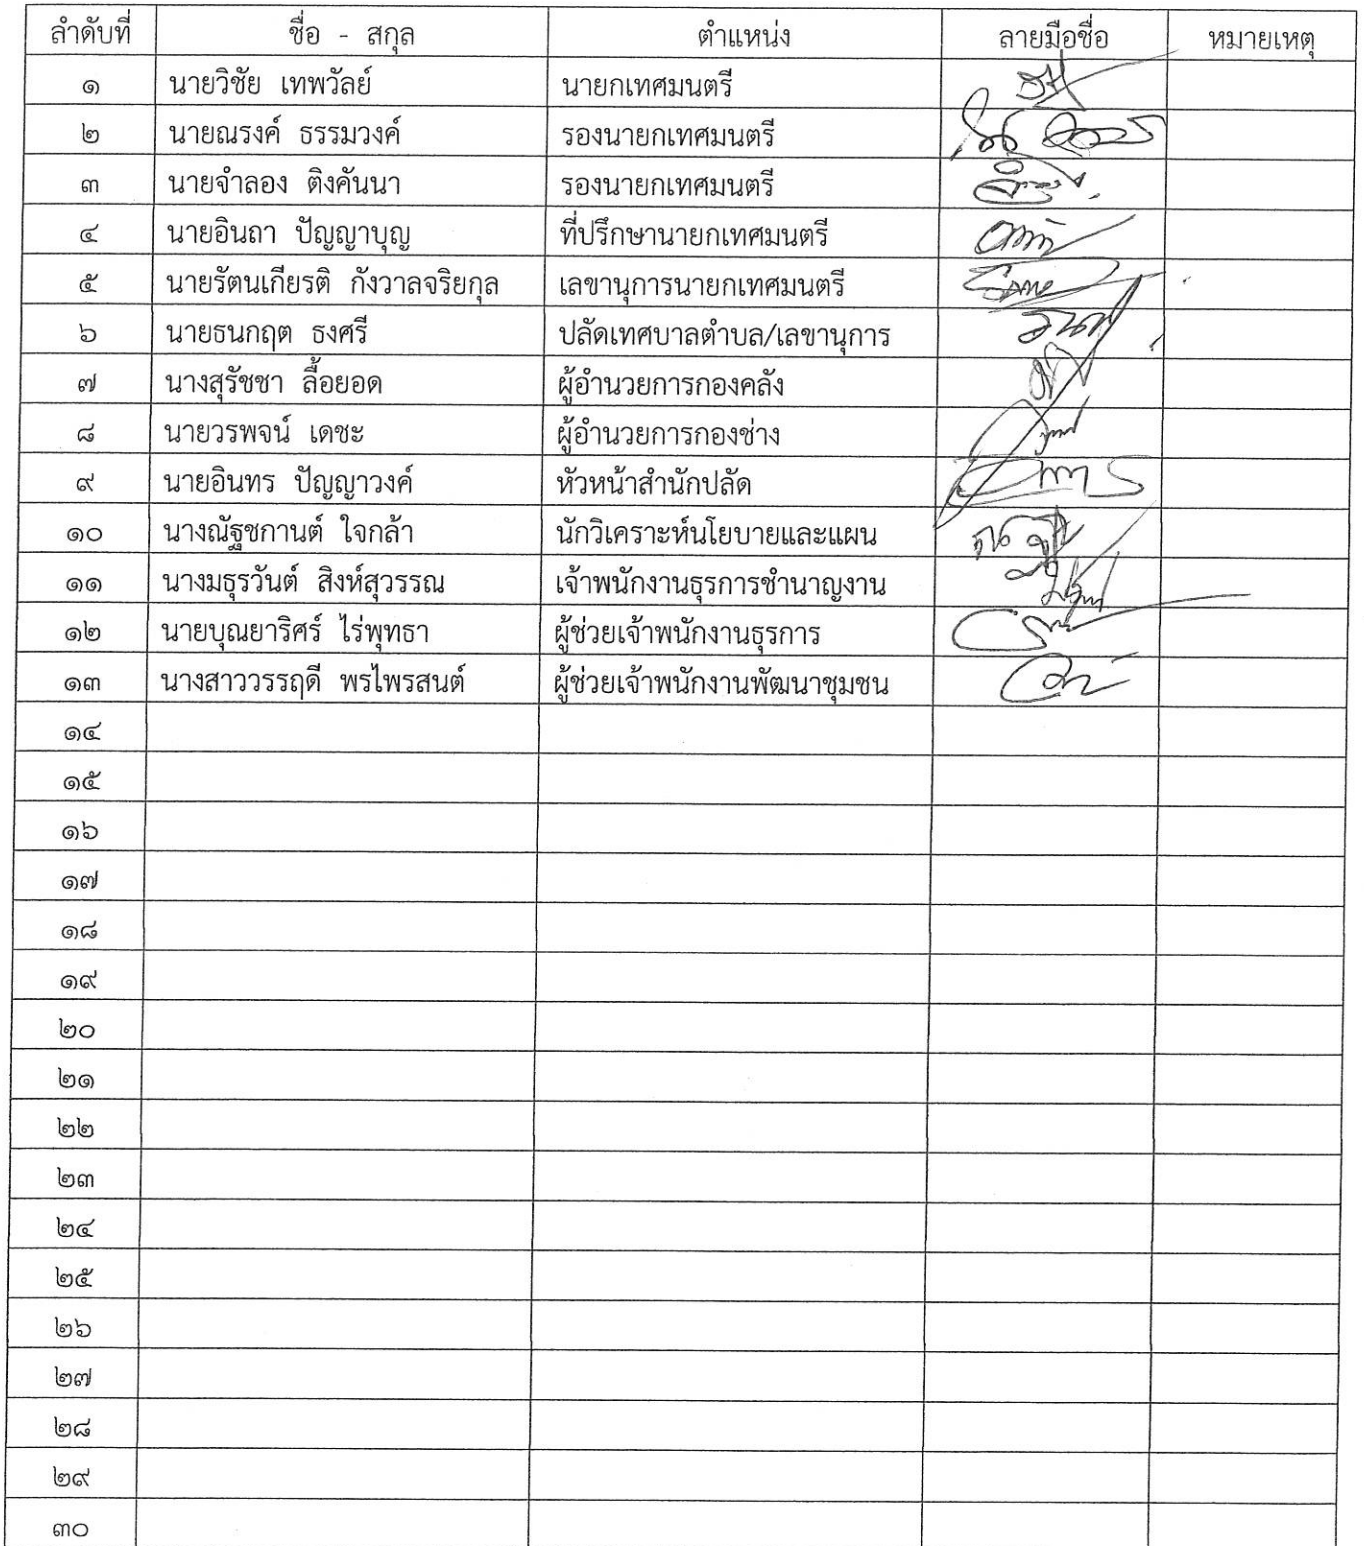 ลำดับที่ ชื่อ - สกุล ตำแหน่ง ลายมือชื่อ หมายเหตุ
๑ นายวิชัย เทพวัลย์ นายกเทศมนตรี
๒ นายณรงค์ ธรรมวงค์ รองนายกเทศมนตรี
๓ นายจำลอง ติงคันนา รองนายกเทศมนตรี
๔ นายอินถา ปัญญาบุญ ที่ปรึกษานายกเทศมนตรี
๕ นายรัตนเกียรติ กังวาลจริยกุล เลขานุการนายกเทศมนตรี
๖ นายธนกฤต ธงศรี ปลัดเทศบาลตำบล/เลขานุการ
๗ นางสุรัชชา ลื้อยอด ผู้อำนวยการกองคลัง
๘ นายวรพจน์ เดชะ ผู้อำนวยการกองช่าง
๙ นายอินทร ปัญญาวงค์ หัวหน้าสำนักปลัด
๑๐ นางณัฐชกานต์ ใจกล้า นักวิเคราะห์นโยบายและแผน
๑๑ นางมธุรวันต์ สิงห์สุวรรณ เจ้าพนักงานธุรการชำนาญงาน
๑๒ นายบุณยาริศร์ ไร่พุทธา ผู้ช่วยเจ้าพนักงานธุรการ
๑๓ นางสาววรรฤดี พรไพรสนต์ ผู้ช่วยเจ้าพนักงานพัฒนาชุมชน
๑๔
๑๕
๑๖
๑๗
๑๘
๑๙
๒๐
๒๑
๒๒
๒๓
๒๔
๒๕
๒๖
๒๗
๒๘
๒๙
๓๐